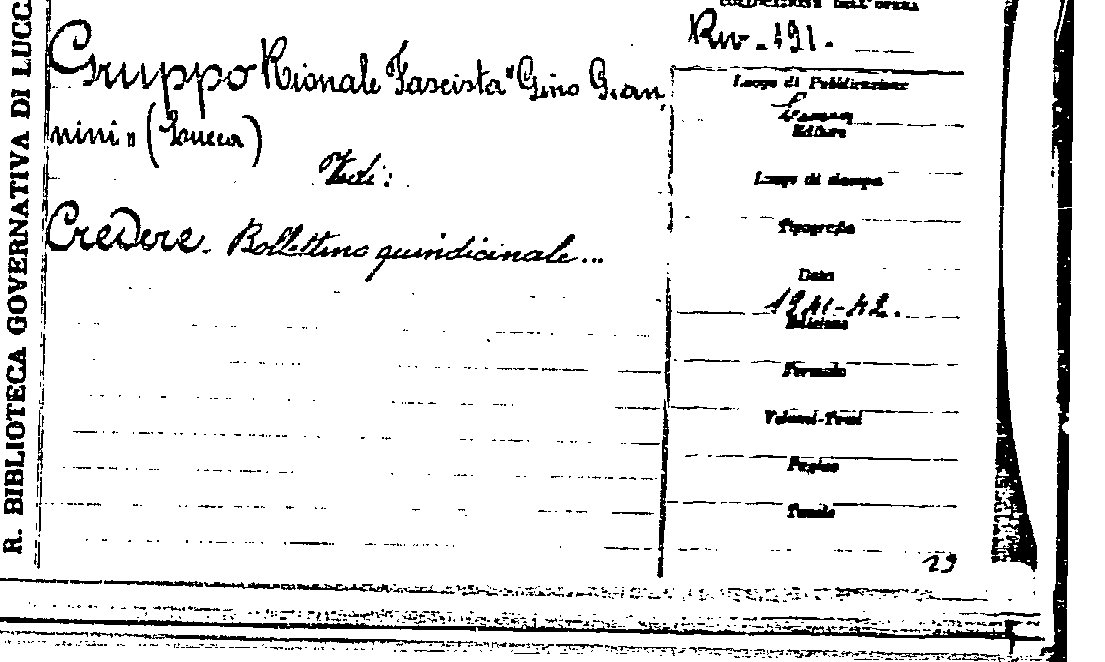 R. BIBLIOTECA GOVERNATIVA DI LUCC
COLLOCAZIONE DELL'OPERA
Riv. 191.
Gruppo Rionale Fascista "Gino Gian
nini" (Lucca)
Vedi:
Credere. Bollettino quindicinale...
Luogo di Pubblicazione
Lucca
Editore
Luogo di stampa
Tipografia
Data
1941-42.
Edizione
Formato
Volumi-Tomi
Pagine
Tavole
29